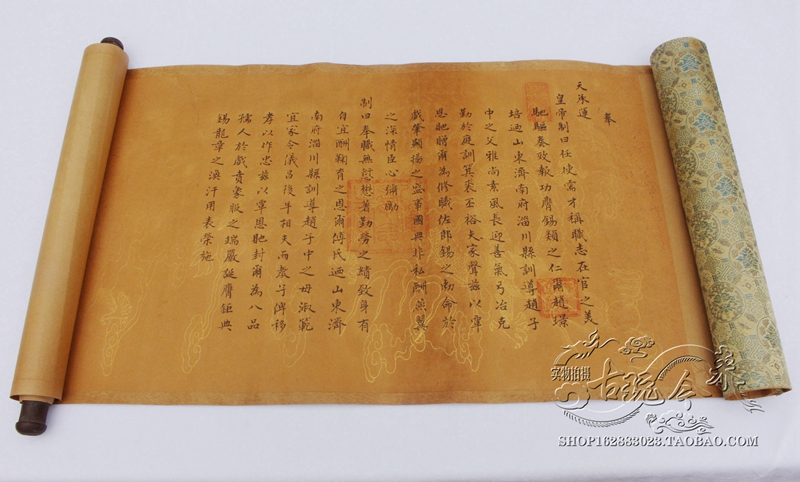 奉
天承運
皇帝制曰任使需才稱職志在官之美
馳驅奏效報功膺錫類之仁爾趙璟
培迺山東濟南府淄川縣訓導趙子
中之父雅尚素風長迎善氣弓冶克
勤於庭訓箕裘丕裕夫家聲茲以覃
恩貤贈爾為修職佐郎錫之勅命於
戲肇顯揚之盛事國典非私酬燕翼
之深情臣心彌勵
制曰奉職無愆懋著勤勞之績致身有
自宜酬鞠育之恩爾傅氏迺山東濟
南府淄川縣訓導趙子中之母淑範
宜家令儀昌後早相夫而教子俾移
孝以作忠茲以覃恩貤封爾為八品
孺人於戲賁象服之端嚴誕膺鉅典
錫龍章之渙汗用表榮施
实物拍摄
古玩今泰
SHOP162883023.TAOBAO.COM